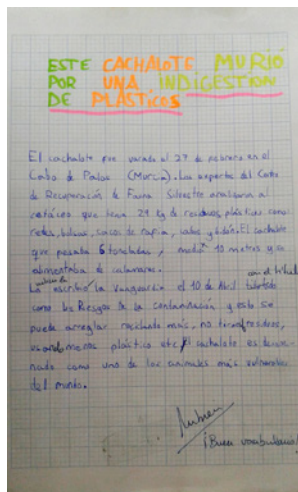 ESTE CACHALOTE MURIÓ
POR UNA INDIGESTION
DE PLÁSTICOS
El cachalote fue varado el 27 de febrero en el
Cabo de Palos (Murcia). Los expertos del Centro
de Recuperación de Fauna Silvestre analizaron al
cetáceo que tenía 29 kg de residuos plásticos como
redes, bolsas, sacos de rafia, cabos y bidón. El cachalote
que pesaba 6 toneladas, medía 10 metros y se
alimentaba de calamares.
La escribió la Vanguardia el 10 de Abril
como los Riesgos de la contaminación y esto se
puede arreglar reciclando más, no
usando menos plástico etc. El cachalote es
nado como uno de los animales más vulnerables
del mundo.
¡Buen vocabulario!